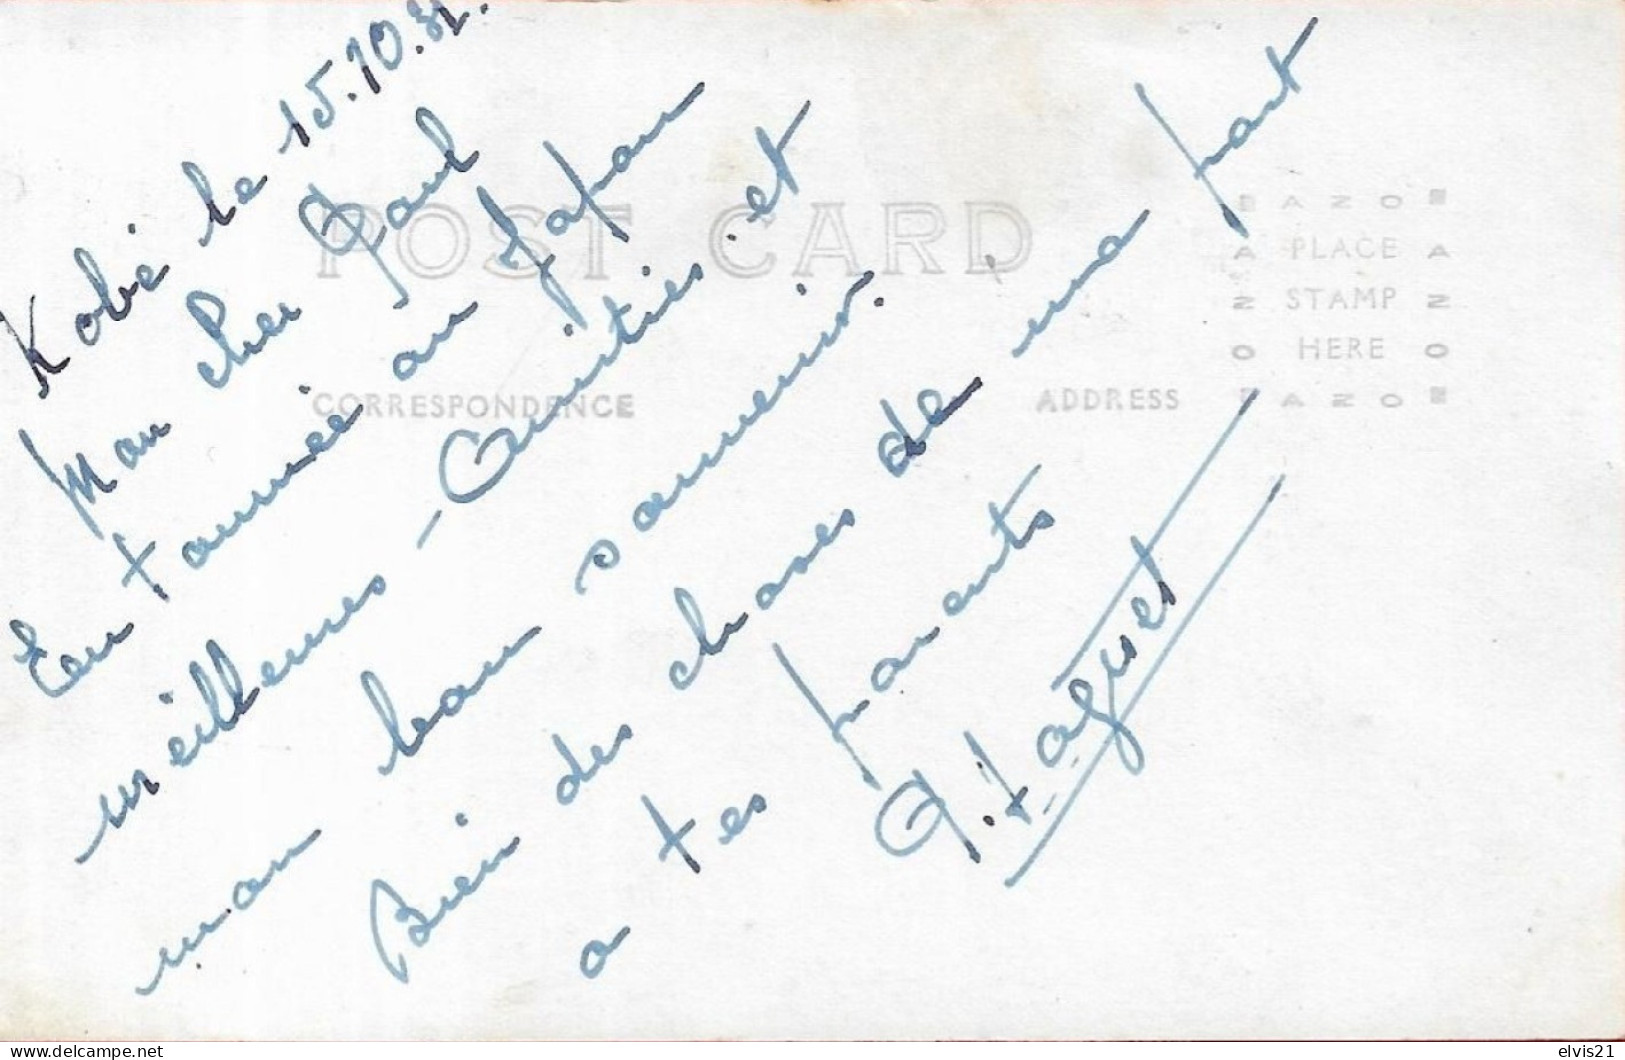 Kobé le 15.10.
Mon cher Paul
En tournée au Japan
meilleures - Amitiés. et
mon bon souvenir.
Bien des choses de ma part
a tes parents
POST CARD
CORRESPONDENCE
ADDRESS
AZO
PLACE
STAMP
HERE
AZO
elvis21